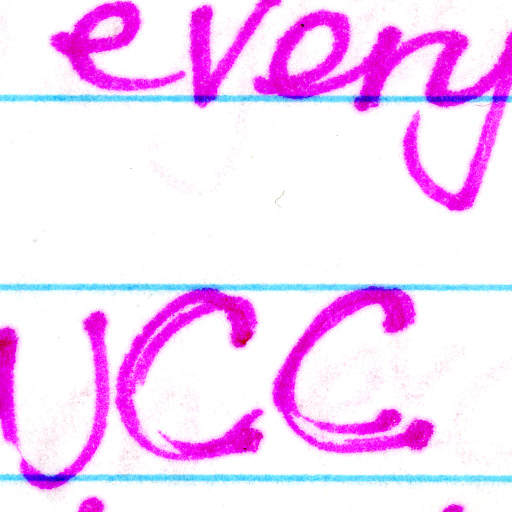 every
ucc